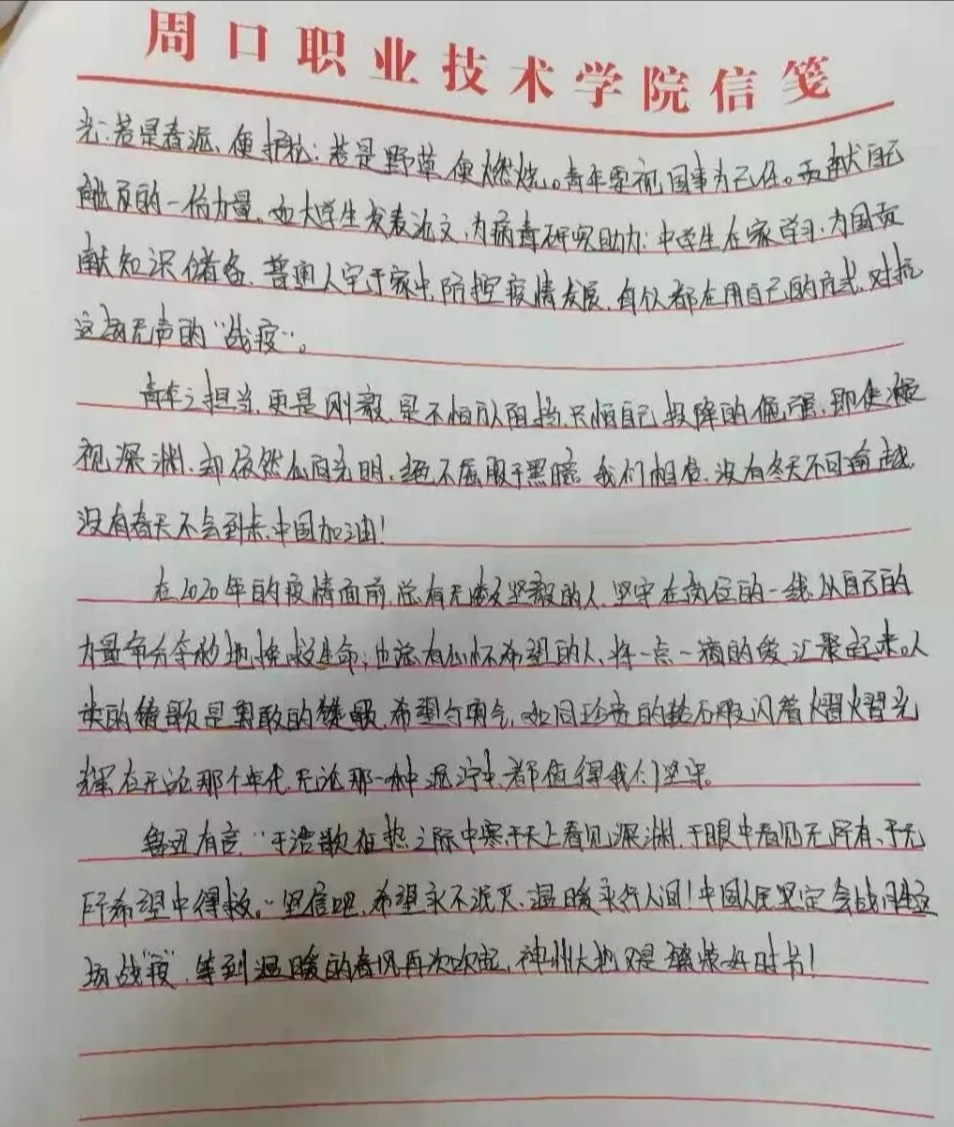 周口职业技术学院信笺
光；若是春泥、便护花；若是野草，便燃烧。青年要视国事为己任。贡献自己
能及的一份力量，如大学生发表论文，为病毒研究助力；中学生在家学习，为国贡
献知识储备，普通人宅于家中，防控疫情发展，自似都在用自己的方式，对抗
这场无声的“战疫”。
青年之担当，更是刚毅，是不怕队阻挡，只怕自己投降的倔强，即使凝
视深渊，却依然心向光明，绝不屈服于黑暗。我们相信，没有冬天不可逾越，
没有春天不会到来，中国加油！
在2020年的疫情面前，总有无数坚毅的人，坚守在岗位的一线，以自己的
力量争分夺秒地挽救生命；也总有心怀希望的人，将一点一滴的爱，汇聚起来。人
类的赞歌是勇敢的赞歌，希望与勇气，如同珍贵的钻石般闪着熠熠光
辉，在无论那个年代，无论那一种泥泞中，都值得我们坚守。
鲁迅有言，“于浩歌狂热之际中寒，于天上看见深渊，于眼中看见无所有，于无
所希望中得救。”坚信吧，希望永不泯灭，温暖永行人间！中国人民坚定会战胜这
场战“疫”，等到温暖的春风再次吹起，神州大地又是 好时节！